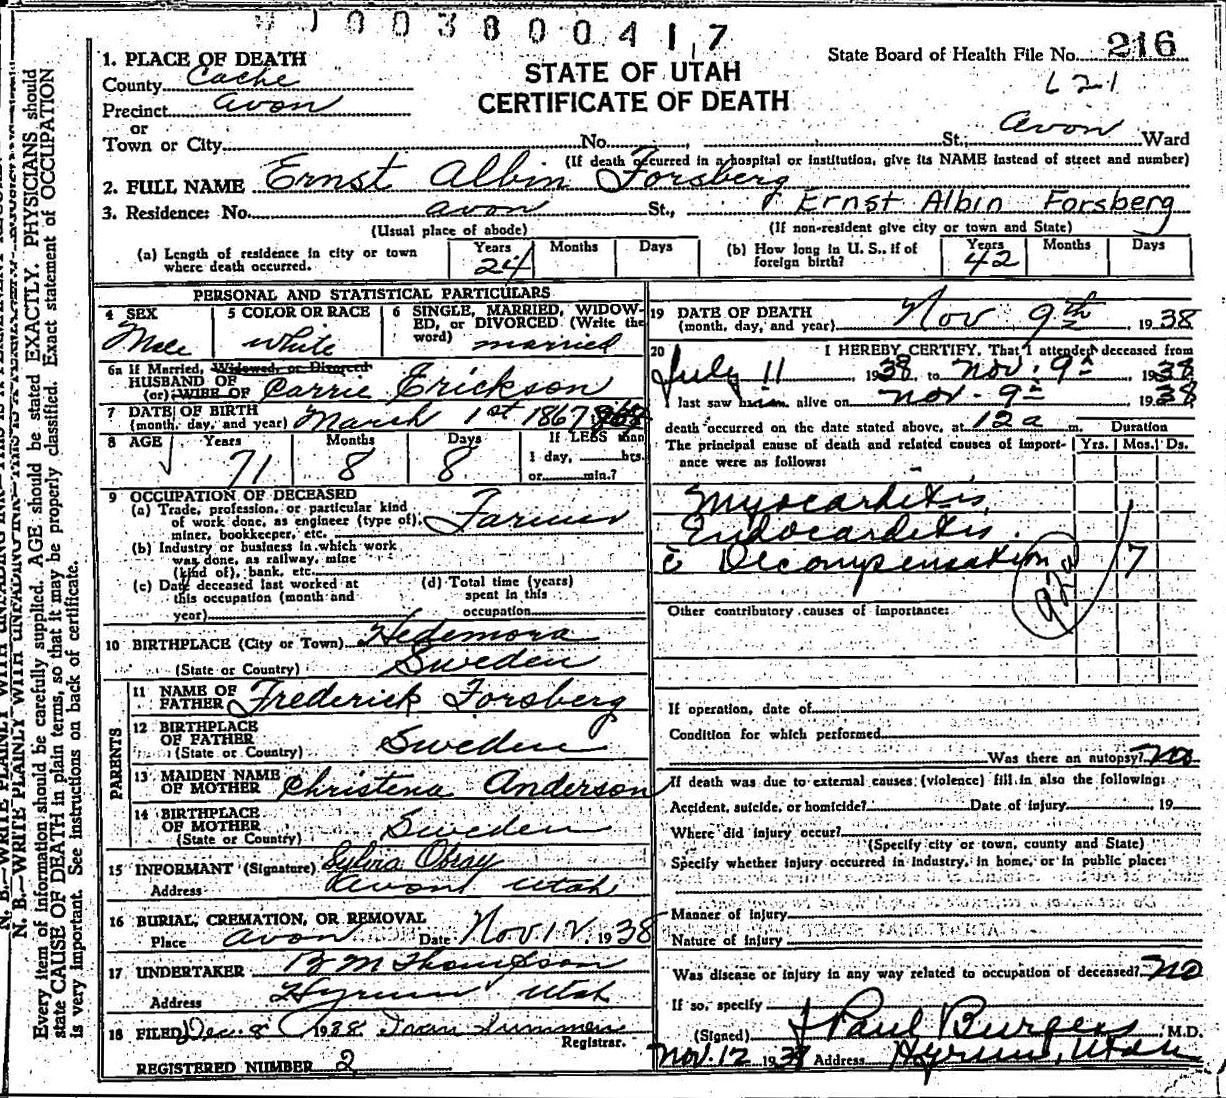 W J 0 0 3 8 0 0 4 1 7
State Board of Health File No. 216
L 2-1
STATE OF UTAH
CERTIFICATE OF DEATH
1. PLACE OF DEATH
County Cache
Precinct Avon
or
Town or City No. St.; Avon Ward
(If death occurred in a hospital or institution, give its NAME instead of street and number)
2. FULL NAME Ernst Albin Forsberg
3. Residence: No. Avon St., Ernst Albin Forsberg
(Usual place of abode) (If non-resident give city or town and State)
(a) Length of residence in city or town where death occurred. Years 24 Months Days
(b) How long in U. S., if of foreign birth? Years 42 Months Days
PERSONAL AND STATISTICAL PARTICULARS
4 SEX Male
5 COLOR OR RACE white
6 SINGLE, MARRIED, WIDOWED, or DIVORCED (Write the word) married
6a If Married, Widowed, or Divorced
HUSBAND OF
(or) WIFE OF Carrie Erickson
7 DATE OF BIRTH
(month, day, and year) March 1st 1867
8 AGE Years 71 Months 8 Days 8 If LESS than
1 day, hrs.
or min.?
9 OCCUPATION OF DECEASED
(a) Trade, profession, or particular kind
of work done, as engineer (type of),
miner, bookkeeper, etc. Farmer
(b) Industry or business in which work
was done, as railway, mine
(kind of), bank, etc.
(c) Date deceased last worked at
this occupation (month and
year)
(d) Total time (years)
spent in this
occupation
10 BIRTHPLACE (City or Town) Hedemora
(State or Country) Sweden
PARENTS
11 NAME OF
FATHER Frederick Forsberg
12 BIRTHPLACE
OF FATHER
(State or Country) Sweden
13 MAIDEN NAME
OF MOTHER Christena Anderson
14 BIRTHPLACE
OF MOTHER
(State or Country) Sweden
15 INFORMANT (Signature) Sylvia Obray
Address Avon Utah
16 BURIAL, CREMATION, OR REMOVAL
Place Avon Date Nov 12, 1938
17 UNDERTAKER B M Thompson
Address Hyrum Utah
18 FILED Dec. 8 1938
Registrar.
REGISTERED NUMBER 2
19 DATE OF DEATH
(month, day, and year) Nov 9th 1938
20 I HEREBY CERTIFY, That I attended deceased from
July 11 1938 to Nov. 9th 1938
I last saw him alive on Nov. 9th 1938
death occurred on the date stated above, at 12 a m. Duration
The principal cause of death and related causes of importance were as follows: Yrs. Mos. Ds.
Myocarditis,
Endocarditis.
c̄ Decompensation 7
92a
Other contributory causes of importance:
If operation, date of
Condition for which performed
Was there an autopsy? no
If death was due to external causes (violence) fill in also the following:
Accident, suicide, or homicide? Date of injury , 19
Where did injury occur?
(Specify city or town, county and State)
Specify whether injury occurred in industry, in home, or in public place:
Manner of injury
Nature of injury
Was disease or injury in any way related to occupation of deceased? no
If so, specify
(Signed) J Paul Burgess, M.D.
Nov. 12 1938 Address Hyrum, Utah
N. B.—WRITE PLAINLY WITH UNFADING INK—THIS IS A PERMANENT RECORD
Every item of information should be carefully supplied. AGE should be stated EXACTLY. PHYSICIANS should
state CAUSE OF DEATH in plain terms, so that it may be properly classified. Exact statement of OCCUPATION
is very important. See instructions on back of certificate.